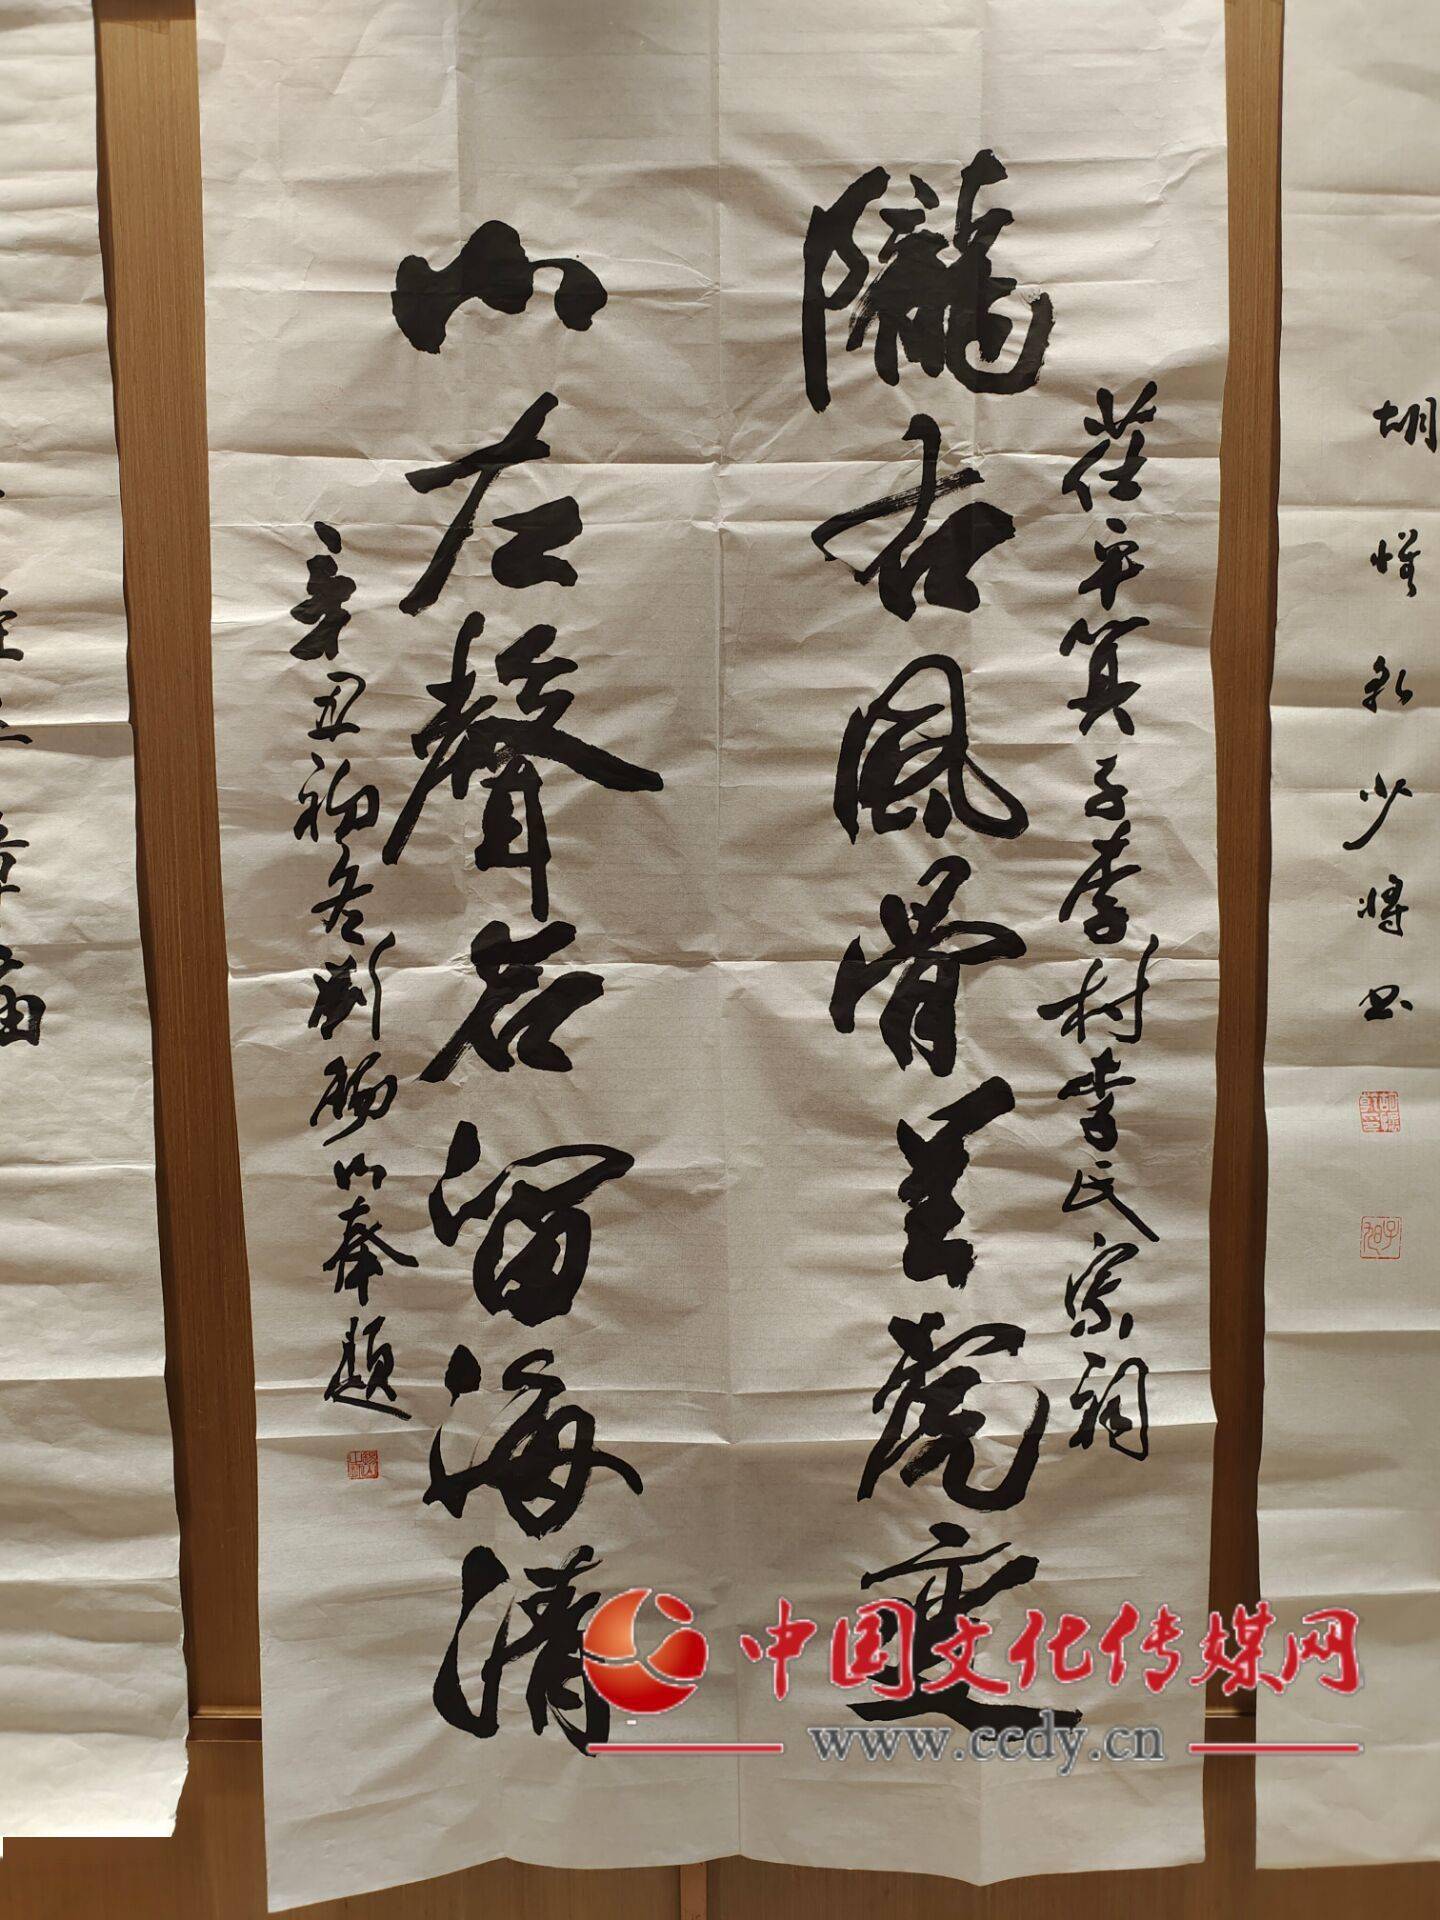 胡
少將书
茌平子李村李氏宗祠
隴右風骨呈虎變
山左聲名留海清
辛丑初冬劉山奉題
中国文化传媒网
www.ccdy.cn